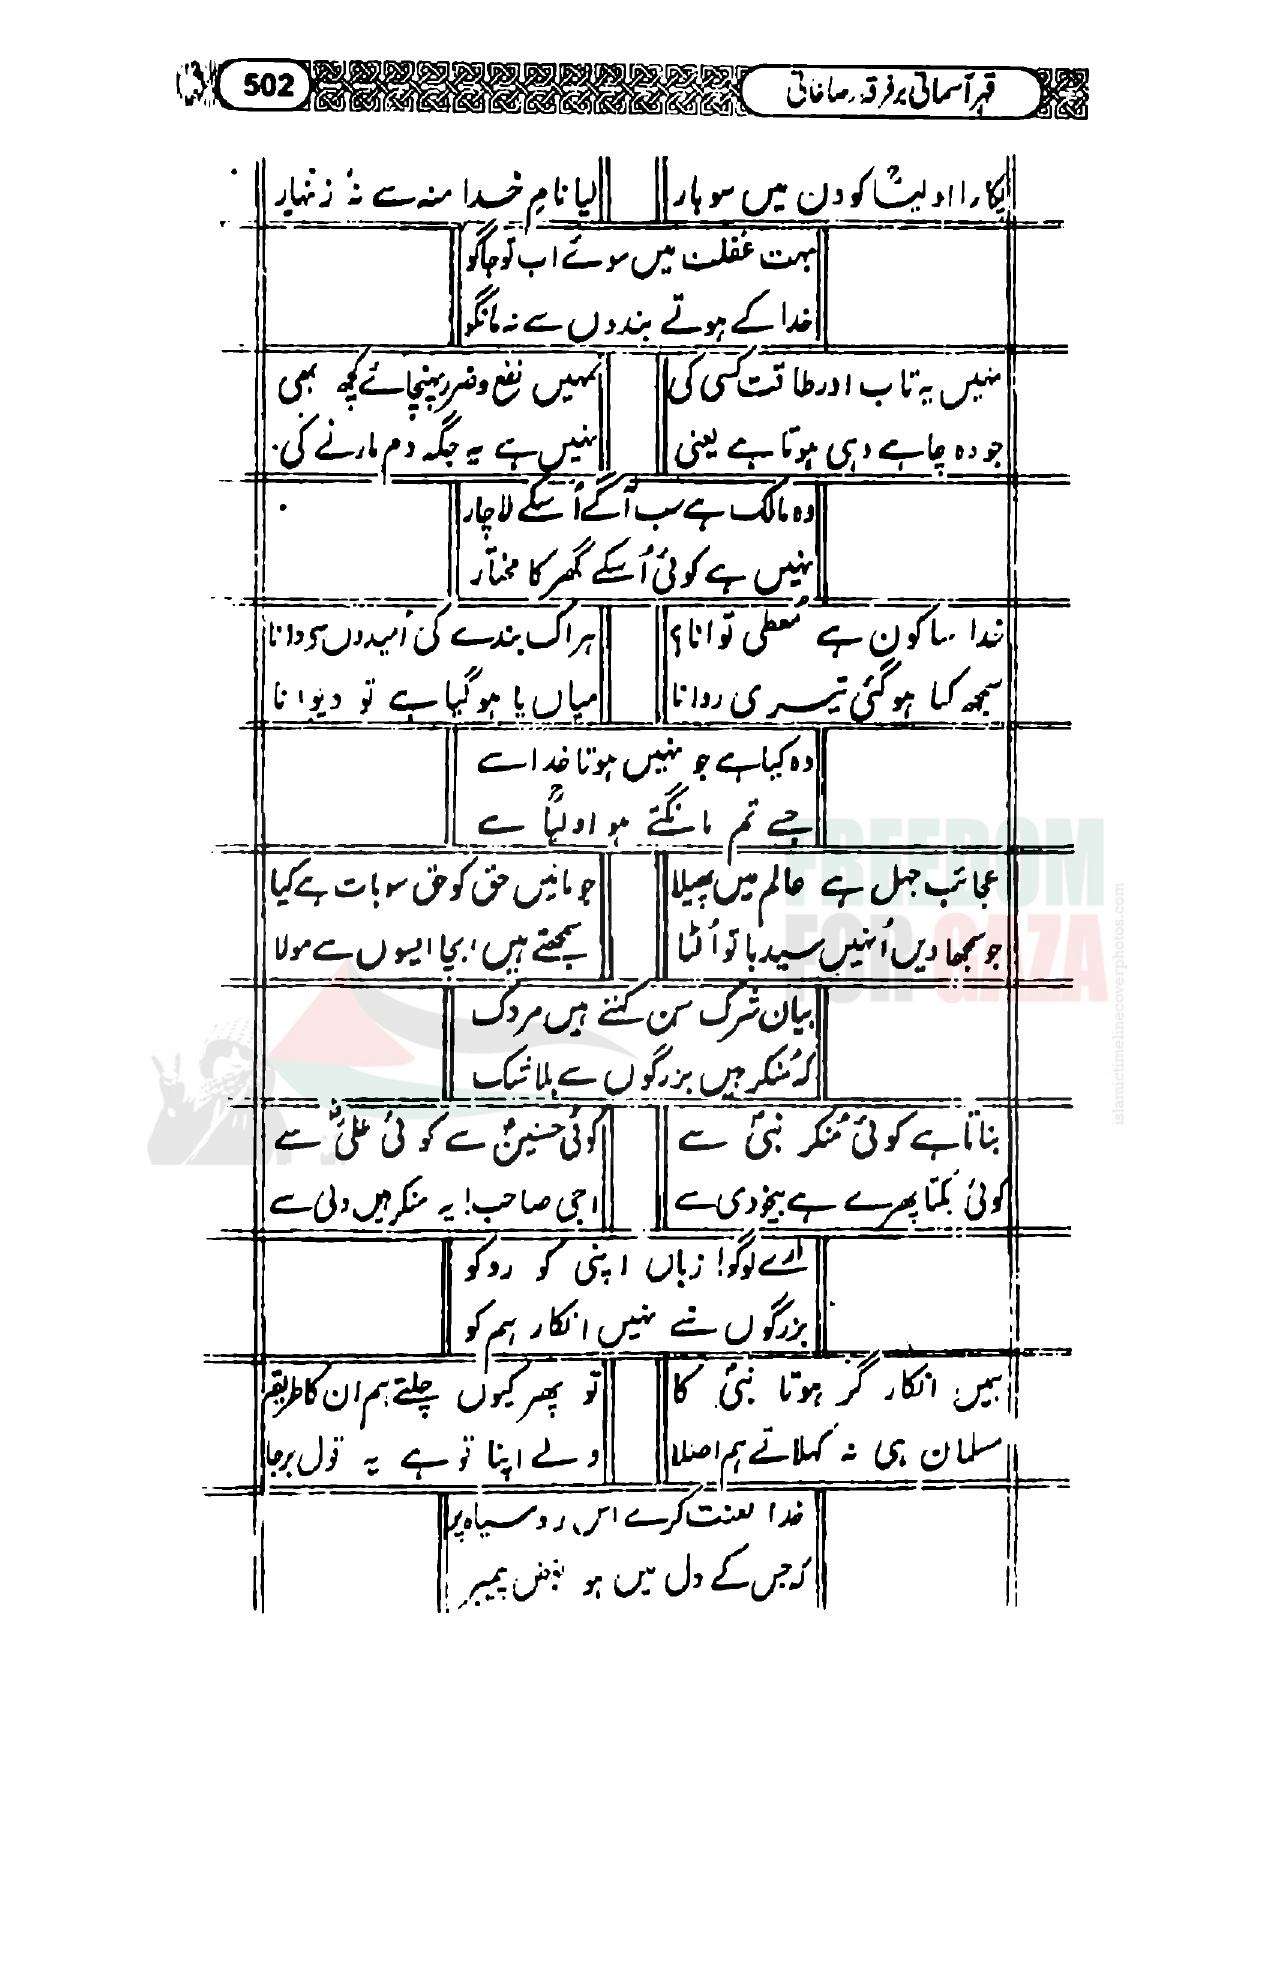 502
قہر آسمانی بر فرقہ رضاخانی
پکارا اولیاؒ کو دن میں سو بار لیا نام خدا منہ سے نہ زنہار
بہت غفلت میں سوئے اب تو جاگو
خدا کے ہوتے بندوں سے نہ مانگو
نہیں یہ تاب اور طاقت کسی کی کہیں نفع و ضرر پہنچائے کچھ بھی
جو وہ چاہے وہی ہوتا ہے یعنی نہیں ہے یہ جگہ دم مارنے کی
وہ مالک ہے سب آگے اُسکے لاچار
نہیں ہے کوئی اُسکے گھر کا مختار
خدا سا کون ہے مُعطی توانا؟ ہر اک بندے کی اُمیدوں سی دانا
سمجھ کیا ہو گئی تیری روانا میاں یا ہو گیا ہے تو دیوانا
وہ کیا ہے جو نہیں ہوتا خدا سے
جسے تم مانگتے ہو اولیاؒ سے
عجائب جہل ہے عالم میں پھیلا جو مانیں حق کو حق سو بات ہے کیا
جو سمجھا دیں اُنہیں سیدہا تو اُلٹا سمجھتے ہیں، بچا ایسوں سے مولا
بیان شرک سن کہتے ہیں مردک
کہ مُنکر ہیں بزرگوں سے بلا شک
بناتا ہے کوئی مُنکر نبیؐ سے کوئی حسنینؓ سے کوئی علیؓ سے
کوئی بکتا پھرے ہے بیخودی سے اجی صاحب! یہ منکر ہیں ولی سے
ارے لوگو! زباں اپنی کو روکو
بزرگوں سے نہیں انکار ہم کو
ہمیں انکار گر ہوتا نبیؐ کا تو پھر کیوں چلتے ہم ان کا طریقہ
مسلمان ہی نہ کہلاتے ہم اصلا ولے اپنا تو ہے یہ قول برجا
خدا لعنت کرے اس رو سیاہ پر
کہ جس کے دل میں ہو بغض پیمبر
FREEDOM
FOR GAZA
islamictimelinecoverphotos.com